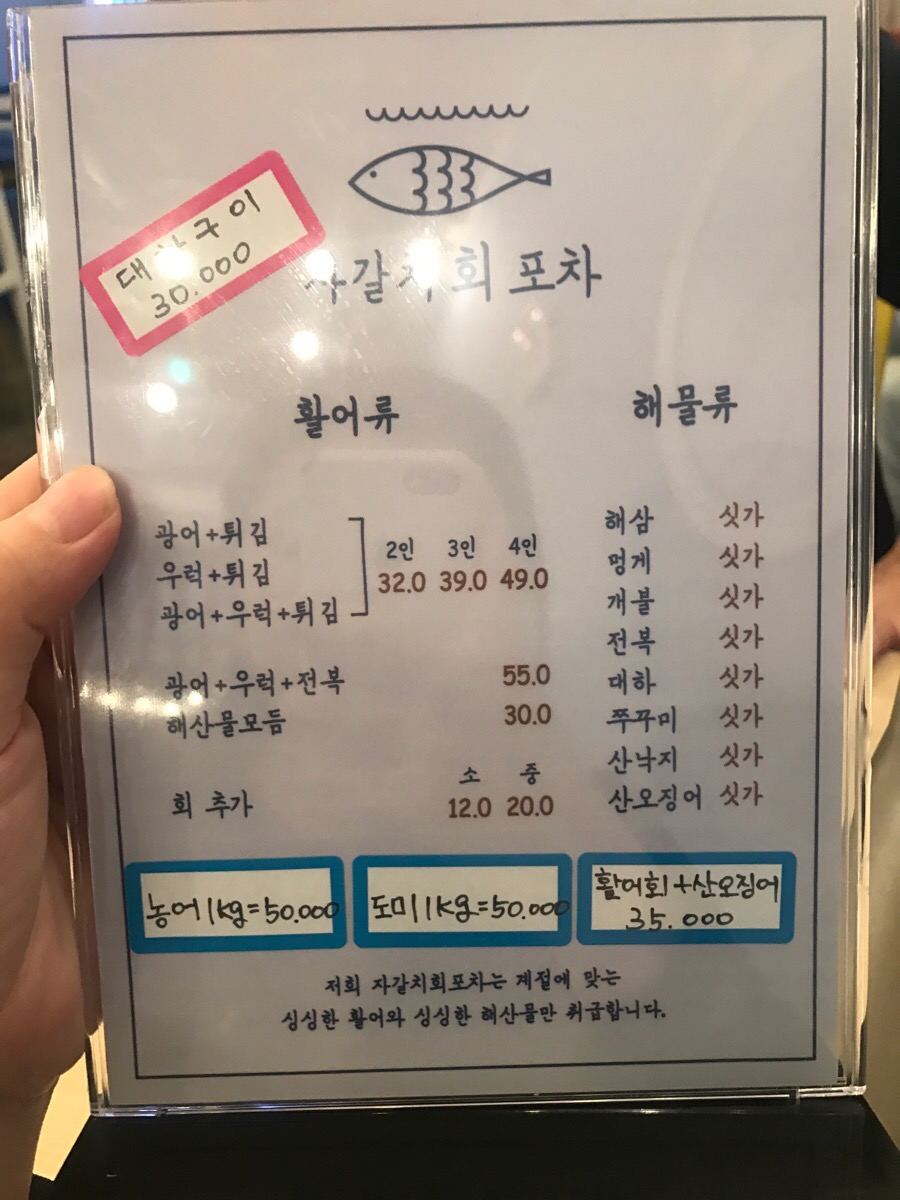 대하구이
30.000
자갈치회포차
활어류
광어+튀김
우럭+튀김
광어+우럭+튀김
2인 3인 4인
32.0 39.0 49.0
광어+우럭+전복 55.0
해산물모듬 30.0
소 중
회 추가 12.0 20.0
해물류
해삼 싯가
멍게 싯가
개불 싯가
전복 싯가
대하 싯가
쭈꾸미 싯가
산낙지 싯가
산오징어 싯가
농어 1kg=50.000
도미 1kg=50.000
활어회+산오징어
35.000
저희 자갈치회포차는 계절에 맞는
싱싱한 활어와 싱싱한 해산물만 취급합니다.